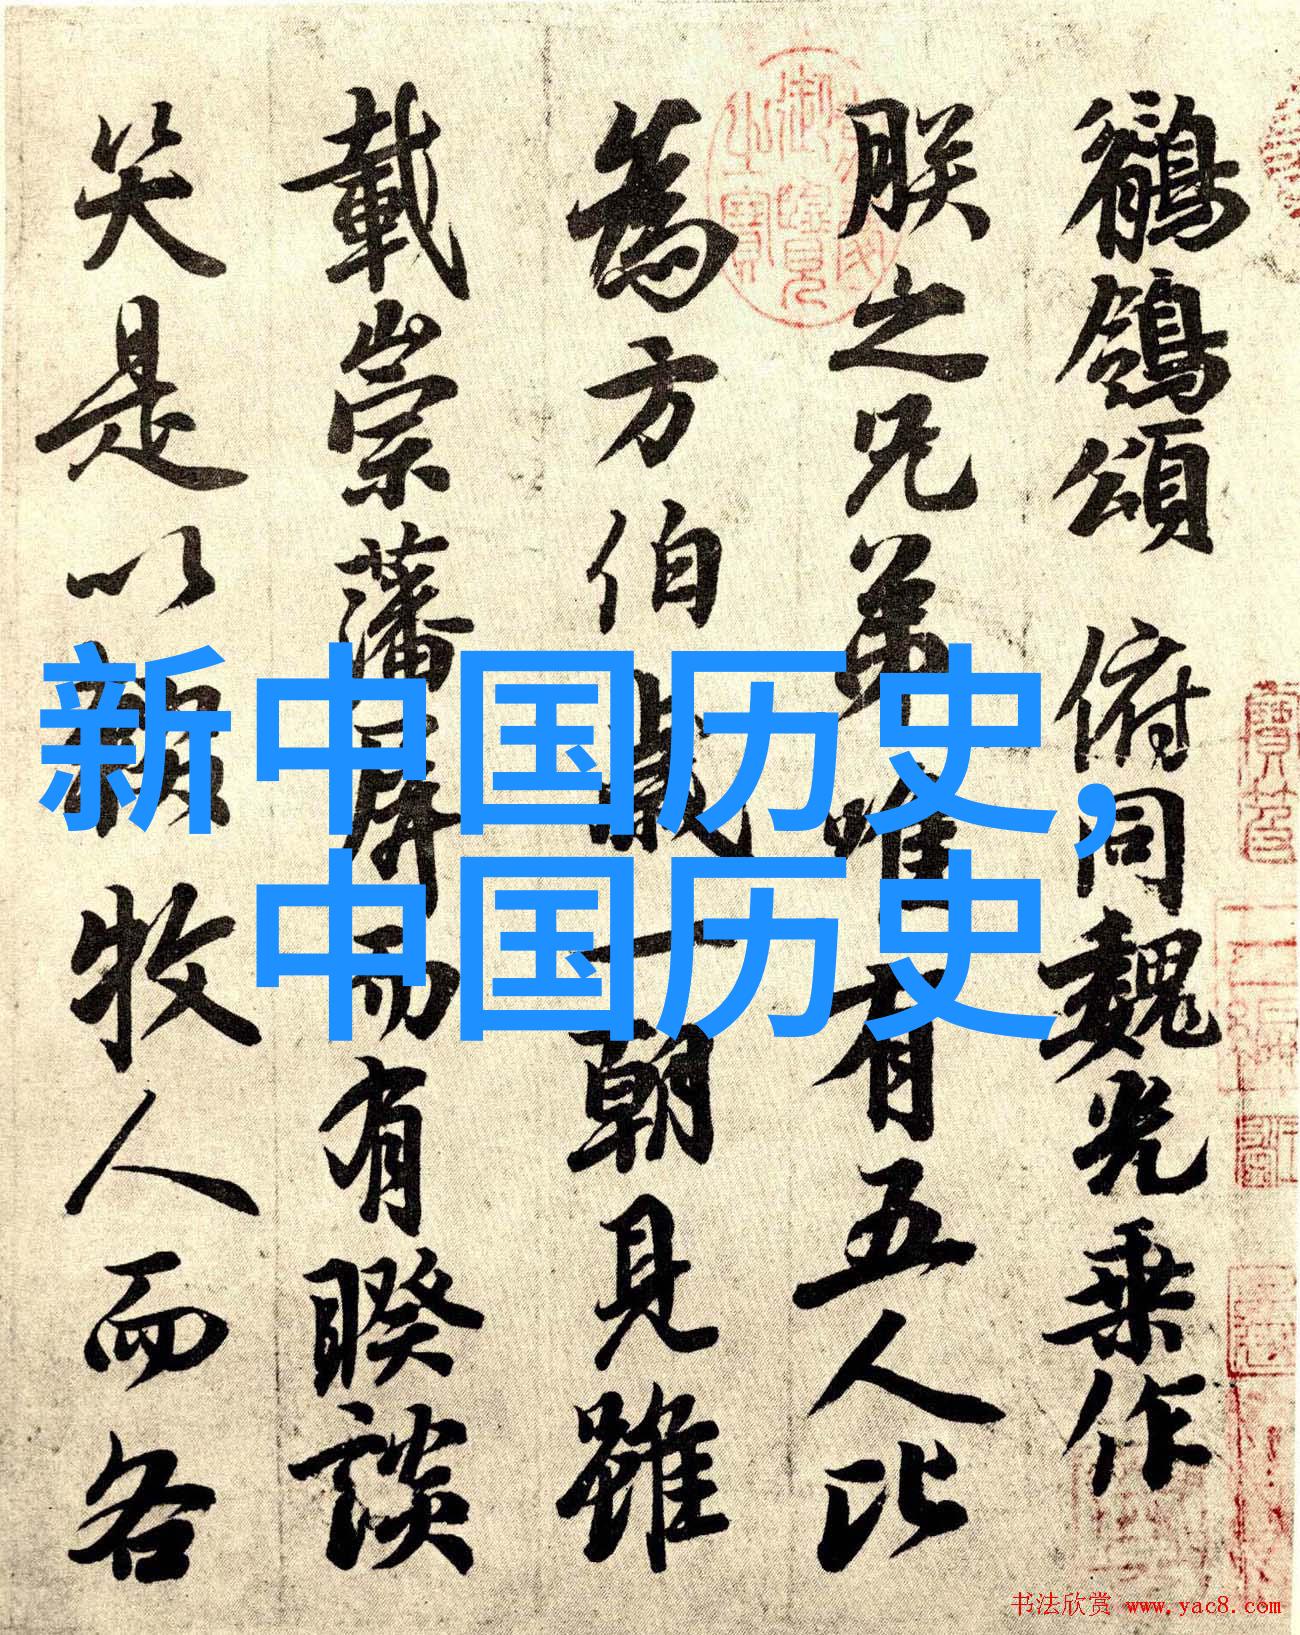 鶺鴒頌 俯同魏光乗作
朕之兄弟唯有五人比
為方伯歲一朝見雖
載崇藩屏而有睽談
笑是以輟牧人而各
新中国历史,
中国历史
书法欣赏 www.yac8.com